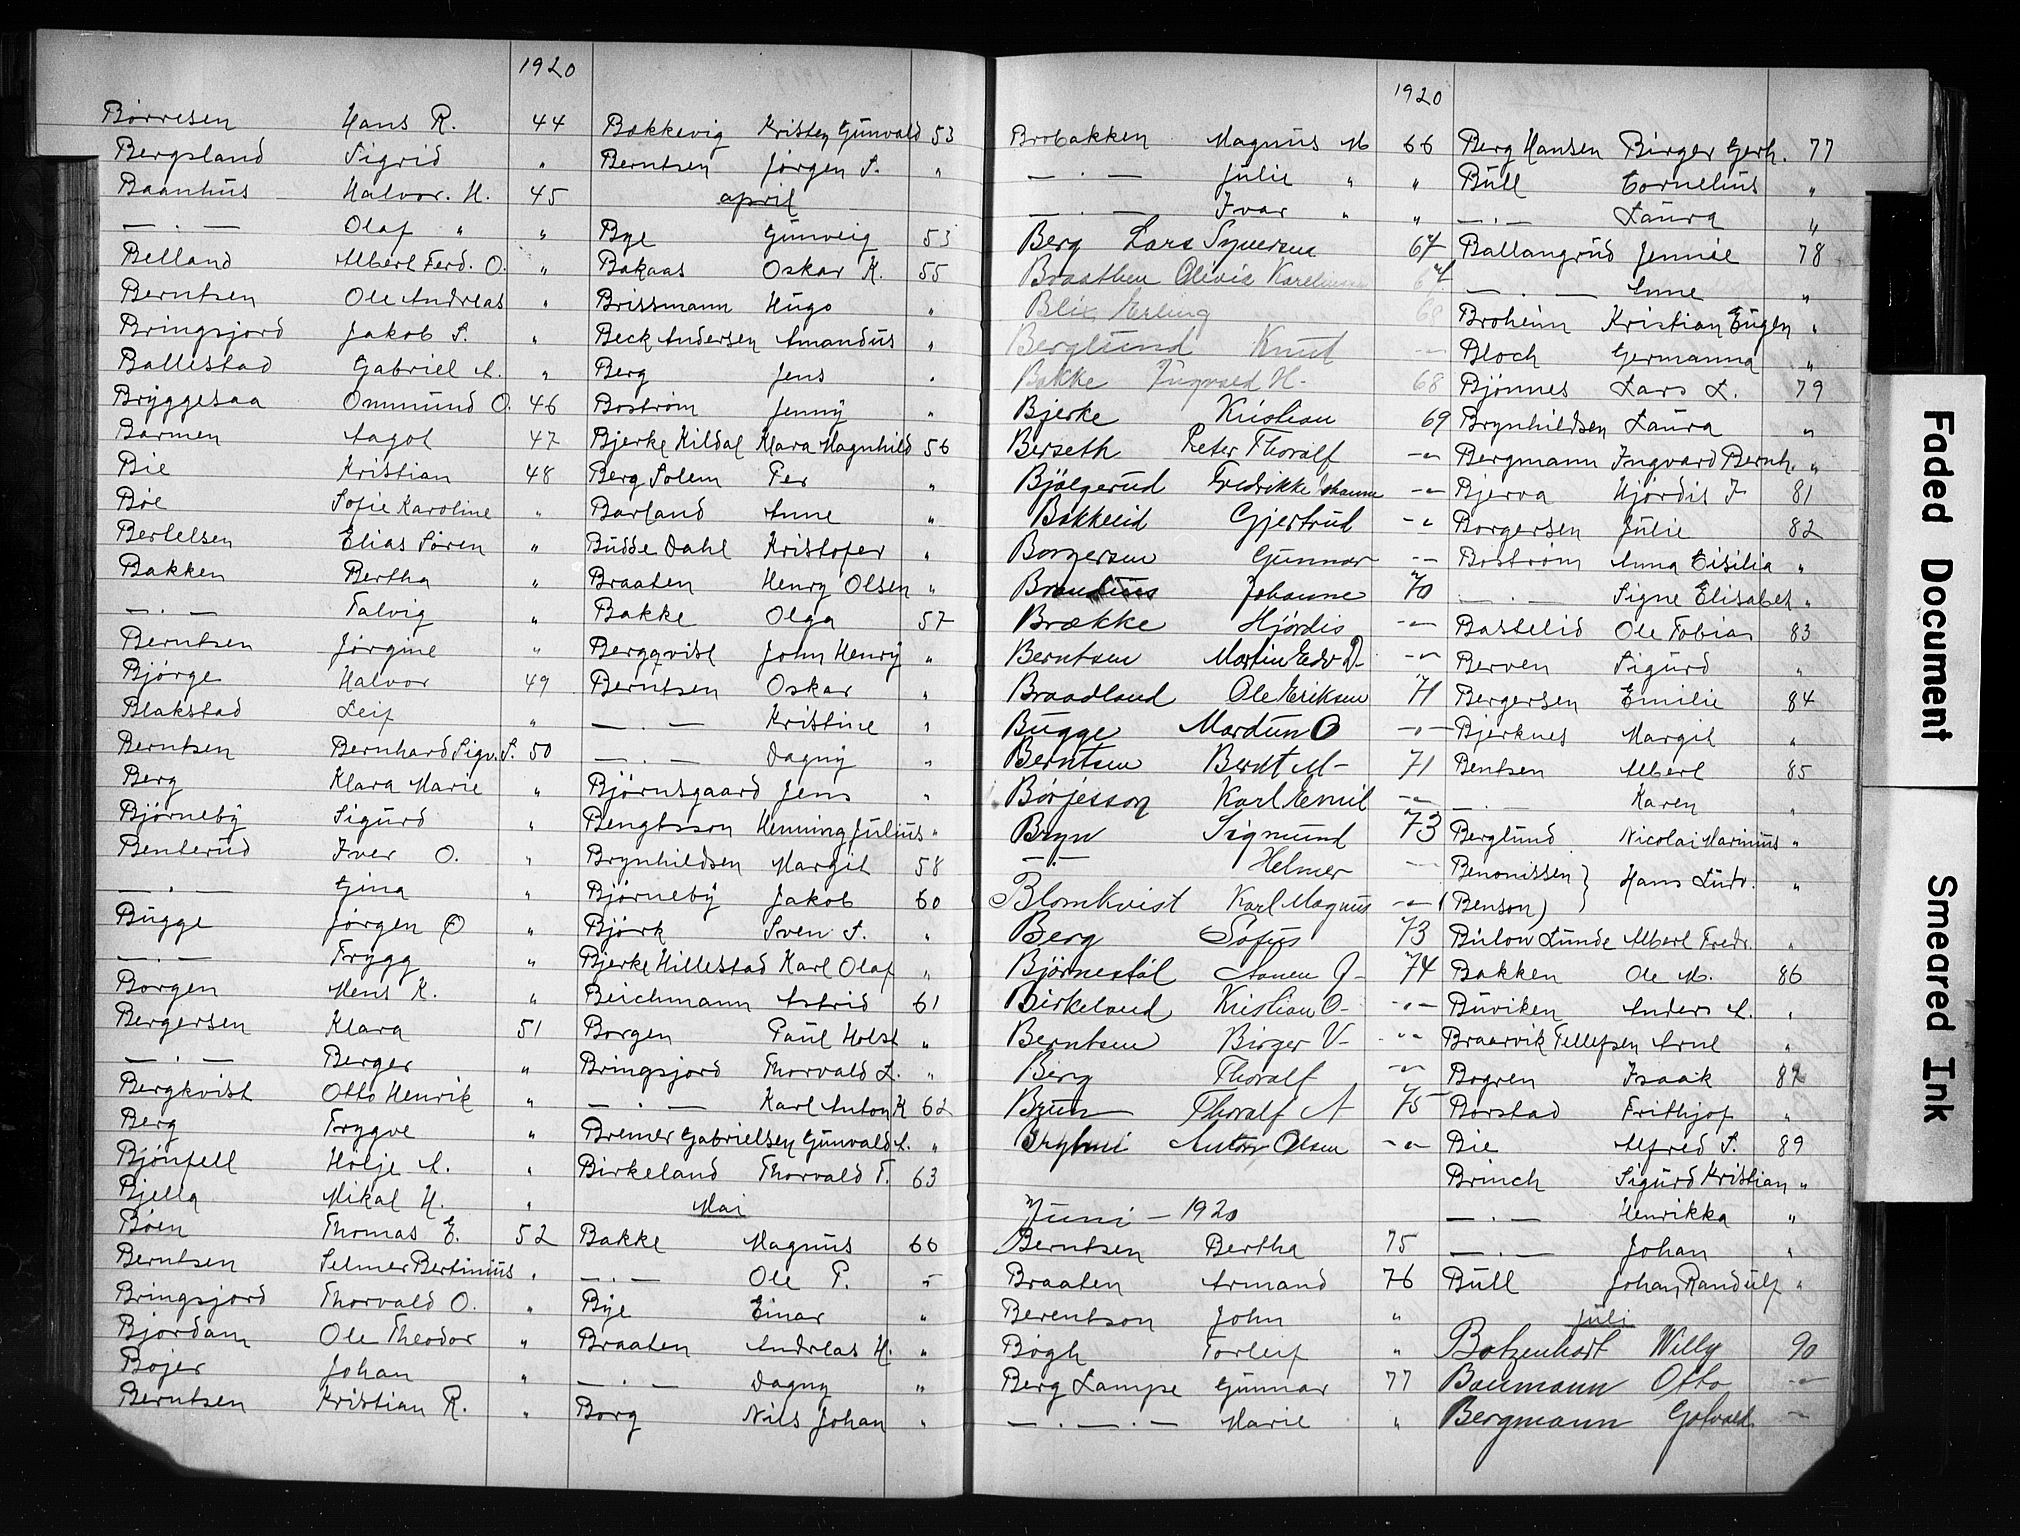 1920
Børresen Hans R. 44
Bergsland Sigrid "
Baanhus Halvor. H. 45
— . — Olaf " "
Belland Albert Ferd. O. "
Berntsen Ole Andreas "
Bringsjord Jakob S. "
Ballestad Gabriel A. "
Bryggesaa Ommund O. 46
Barmen Aagot 47
Bie Kristian 48
Bøe Sofie Karoline "
Bertelsen Elias Søren "
Bakken Bertha "
— . — Talvig "
Berntsen Jørgine "
Bjørge Halvor 49
Blakstad Leif "
Berntsen Bernhard Sigv. S. 50
Berg Klara Marie "
Bjørneby Sigurd "
Benterud Iver O. "
— . — Gina "
Bugge Jørgen O "
— . — Trygg "
Borgen Mens K. "
Bergersen Klara 51
— . — Berger "
Bergkvist Otto Henrik "
Berg Trygve "
Bjønfell Holje A. "
Bjella Mikal H. "
Bøen Thomas E. 52
Berntsen Selmer Bertinius "
Bringsjord Thorvald O. "
Bjordam Ole Theodor "
Bojer Johan "
Berntsen Kristian R. "
Bakkevig Kristen Gunvald 53
Berntsen Jørgen S. "
april
Bye Gunveig 53
Bakaas Oskar K. 55
Brissmann Hugo "
Beck Andersen Amandus "
Berg Jens "
Bostrøm Jenny "
Bjerke Kildal Klara Magnhild 56
Berg Solem Per "
Barland Anne "
Budde Dahl Kristofer "
Braaten Henry Olsen "
Bakke Olga 57
Bergqvist John Henry "
Berntsen Oskar "
— . — Kristine "
— . — Dagny "
Bjørnsgaard Jens "
Bengtsson Henning Julius "
Brynhildsen Margit 58
Bjørneby Jakob 60
Bjørk Sven S. "
Bjerke Hillestad Karl Olaf "
Beichmann Astrid 61
Borgen Paul Holst "
Bringsjord Thorvald L. "
— . — Karl Anton K 62
Bremer Gabrielsen Gunvald A. "
Birkeland Thorvald T. 63
Mai
Bakke Magnus 66
— . — Ole P. "
Bye Einar "
Braaten Andreas H. "
— . — Dagny "
Borg Nils Johan "
1920
Brobakken Magnus M 66
— . — Julie " "
— . — Ivar " "
Berg Lars Syversen 67
Braathen Olivie 67
Blix Erling 68
Berglund Knut —
Bakke Ingvald H. 68
Bjerke Kristian 69
Berseth Peter Thoralf —"—
Bjølgerud Fredrikke Johanne —"—
Bakkelid Gjertrud —"
Borgersen Gunnar —"—
Brandtius Johanne 70
Brække Hjørdis —"—
Berntsen Martin Edv —"—
Braadland Ole Eriksen 71
Bugge Mardun O —"—
Berntsen Berdt M— 71
Børjesson Karl Emil —"—
Bryn Sigmund 73
— . — Helmer —"—
Blomkvist Karl Magnus —"—
Berg Sofus 73
Bjørnestøl Aanen G— 74
Birkeland Kristian O— —"—
Berntsen Birger V— "—
Berg Thoralf —"—
Bruun Thoralf A 75
Anton Olsen —"—
Juni — 1920
Berntsen Bertha 75
Braaten Armand 76
Berentson John "
Bøgh Torleif "
Berg Lampe Gunnar 77
— . — . — Marie "
Berg Hansen Birger Gerh. 77
Bull Cornelius "
— . — Laura "
Ballangrud Jennie 78
— . — Anne "
Broheim Kristian Eugen "
Bloch Germanna "
Bjønnes Lars L. 79
Brynhildsen Laura "
Bergmann Ingvard Bernh. "
Bjerva Hjørdis J. 81
Borgersen Julie 82
Bostrøm Anna Cisilia "
— . — Signe Elisabet "
Bastelid Ole Tobias 83
Berven Sigurd "
Bergersen Emilie 84
Bjerknes Margit "
Bentsen Albert 85
— . — Karen "
Berglund Nicolai Marinius "
Benonissen } Hans Ludv. "
(Benson)
Bülow Lunde Albert Fredr. "
Bakken Ole M. 86
Buviken Anders A. "
Braarvik Tellefsen Arne "
Bogren Isaak 87
Borstad Frithjof "
Bie Alfred S. 89
Brinch Sigurd Kristian "
— . — Henrikka "
— . — Johan "
Bull Johan Randulf "
Juli
Botzenhart Willy 90
Baumann Otto —"—
Bergmann Gotvald —
Faded Document
Smeared Ink